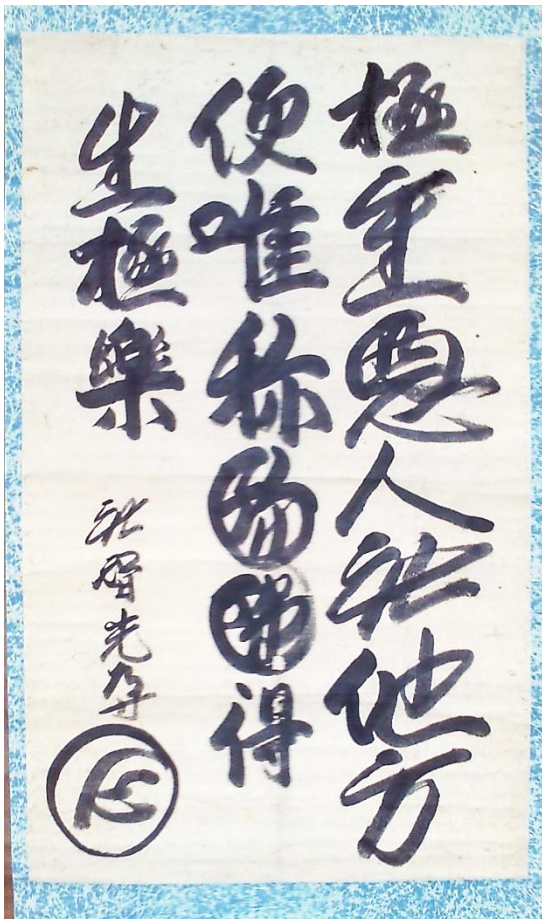 極重悪人無他方
便唯称得
生極樂
智光
心